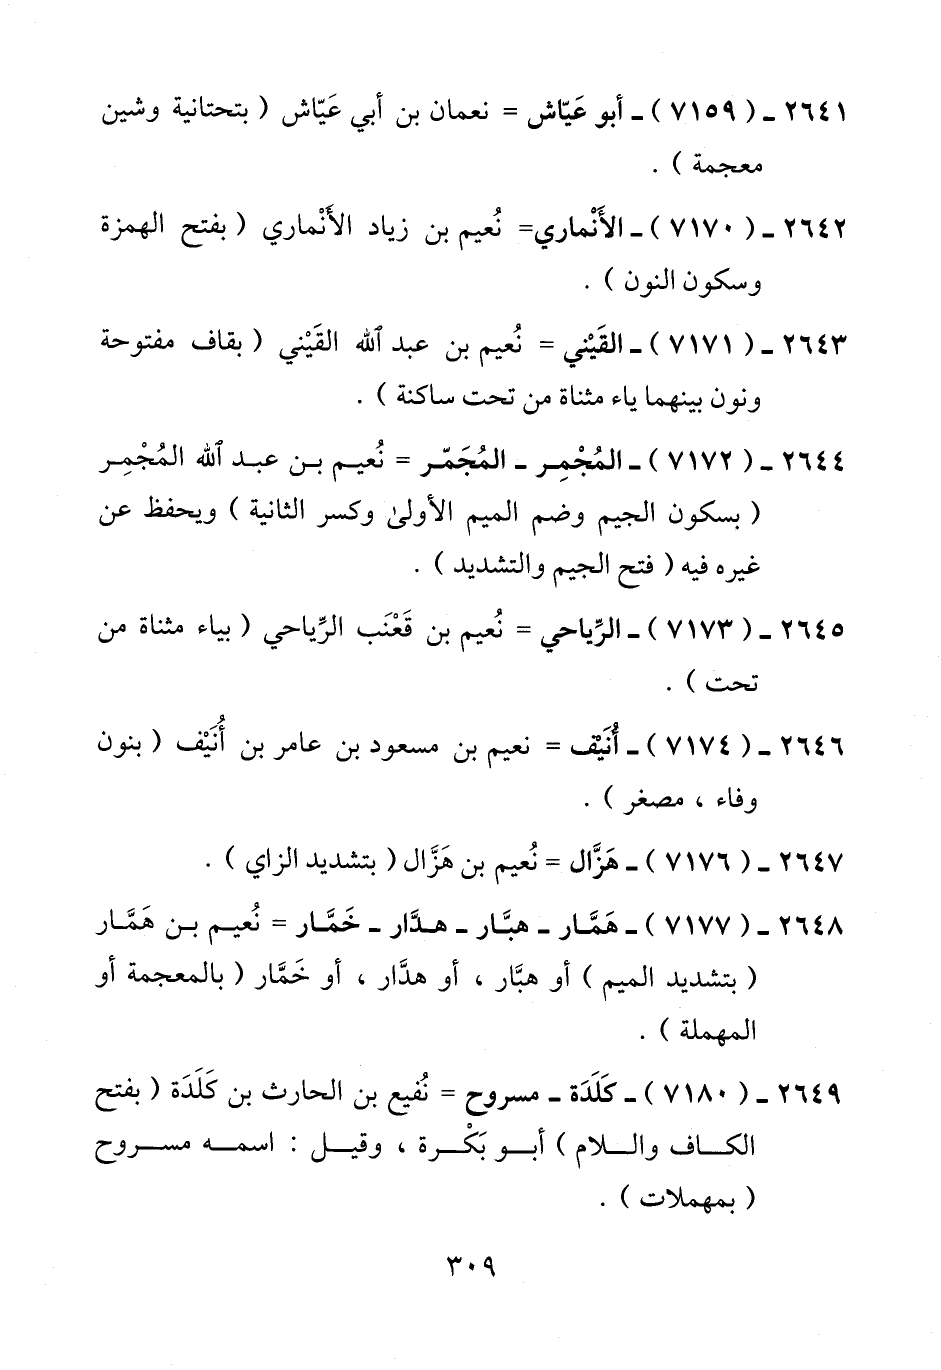 ٢٦٤١ ـ ( ٧١٥٩ ) ـ أبو عَيّاش = نعمان بن أبي عَيّاش ( بتحتانية وشين
معجمة ) .
٢٦٤٢ ـ ( ٧١٧٠ ) ـ الأَنْماري= نُعيم بن زياد الأَنْماري ( بفتح الهمزة
وسكون النون ) .
٢٦٤٣ ـ ( ٧١٧١ ) ـ القَيْني = نُعيم بن عبد الله القَيْني ( بقاف مفتوحة
ونون بينهما ياء مثناة من تحت ساكنة ) .
٢٦٤٤ ـ ( ٧١٧٢ ) ـ المُجْمِر ـ المُجَمّر = نُعيم بن عبد الله المُجْمِر
( بسكون الجيم وضم الميم الأولىٰ وكسر الثانية ) ويحفظ عن
غيره فيه ( فتح الجيم والتشديد ) .
٢٦٤٥ ـ ( ٧١٧٣ ) ـ الرِّياحي = نُعيم بن قَعْنَب الرِّياحي ( بياء مثناة من
تحت ) .
٢٦٤٦ ـ ( ٧١٧٤ ) ـ أُنَيْف = نعيم بن مسعود بن عامر بن أُنَيْف ( بنون
وفاء ، مصغر ) .
٢٦٤٧ ـ ( ٧١٧٦ ) ـ هَزَّال = نُعيم بن هَزَّال ( بتشديد الزاي ) .
٢٦٤٨ ـ ( ٧١٧٧ ) ـ هَمَّار ـ هبَّار ـ هدَّار ـ خَمَّار = نُعيم بن هَمَّار
( بتشديد الميم ) أو هبَّار ، أو هدَّار ، أو خَمَّار ( بالمعجمة أو
المهملة ) .
٢٦٤٩ ـ ( ٧١٨٠ ) ـ كَلَدَة ـ مسروح = نُفيع بن الحارث بن كَلَدَة ( بفتح
الكاف واللام ) أبو بَكْرة ، وقيل : اسمه مسروح
( بمهملات ) .
٣٠٩